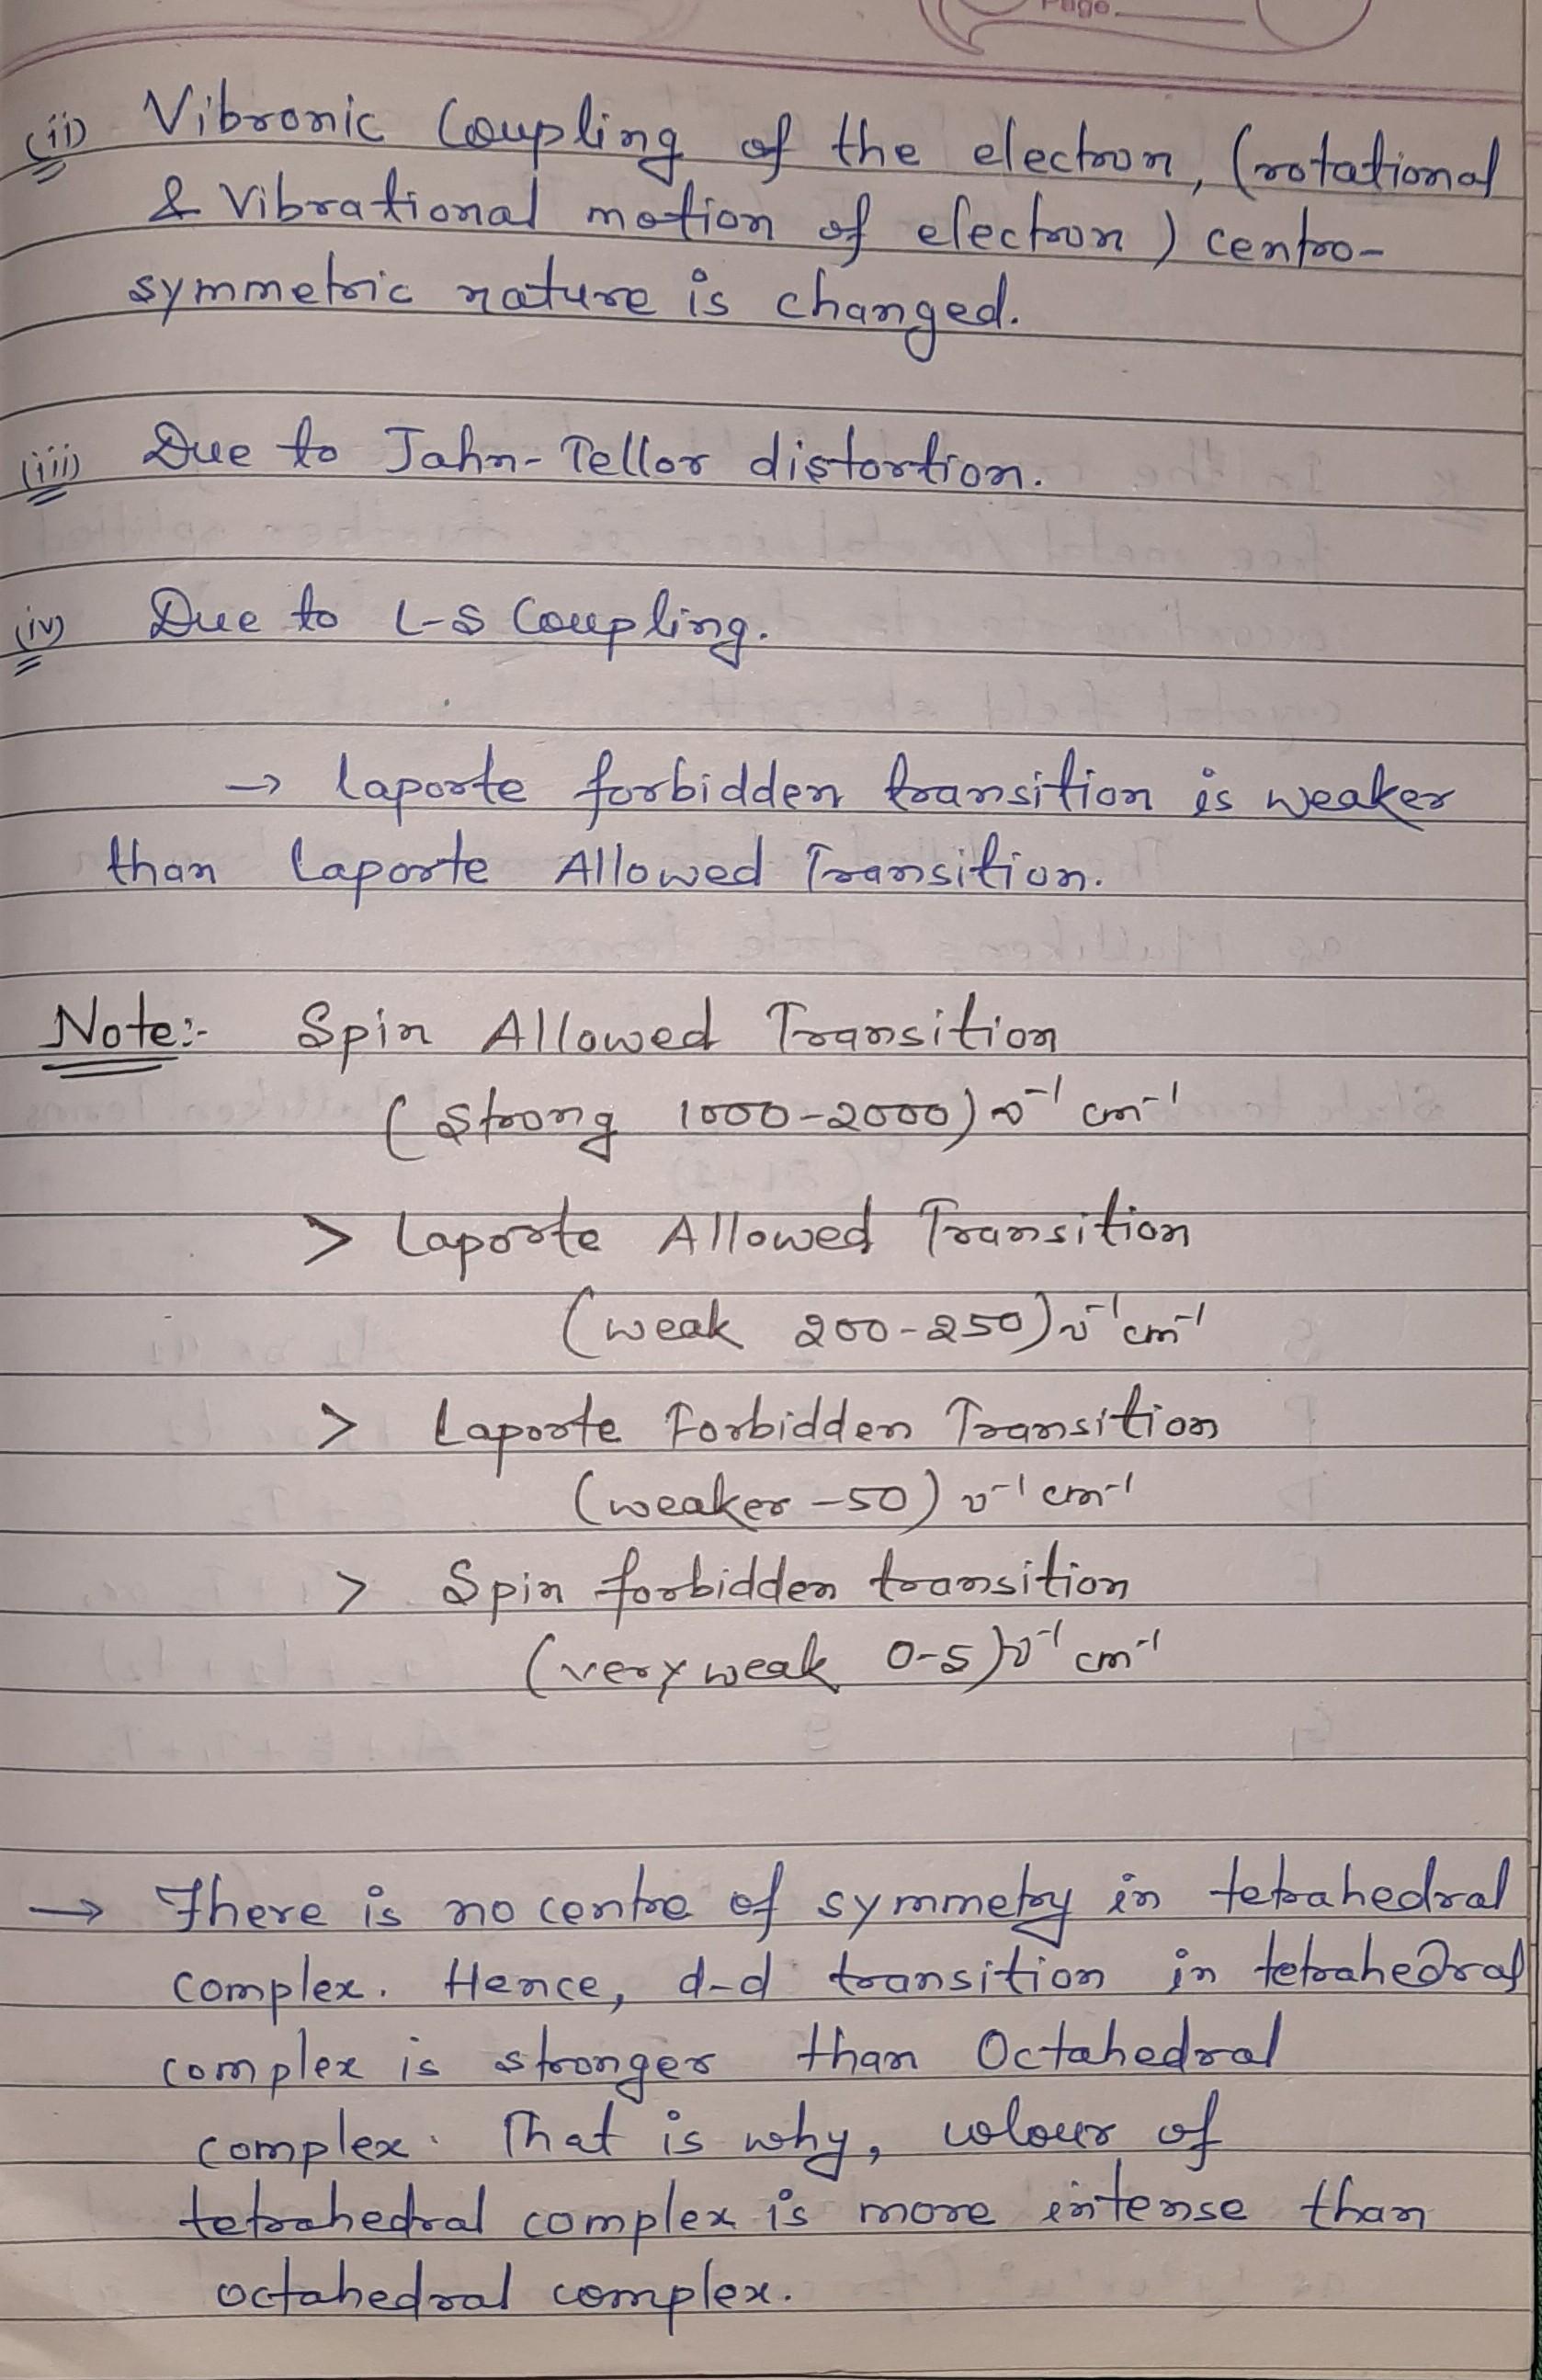 Page
(ii) Vibronic Coupling of the electron, (rotational
& Vibrational motion of electron) centro-
symmetric nature is changed.
(iii) Due to Jahn-Tellor distortion.
(iv) Due to L-S Coupling.
→ laporte forbidden transition is weaker
than laporte Allowed Transition.
Note:- Spin Allowed Transition
(Strong 1000-2000) ν⁻¹ cm⁻¹
> Laporte Allowed Transition
(weak 200-250) ν⁻¹ cm⁻¹
> Laporte Forbidden Transition
(weaker -50) ν⁻¹ cm⁻¹
> Spin forbidden transition
(very weak 0-5) ν⁻¹ cm⁻¹
→ There is no centre of symmetry in tetrahedral
complex. Hence, d-d transition in tetrahedral
complex is stronger than Octahedral
complex. That is why, colour of
tetrahedral complex is more intense than
octahedral complex.